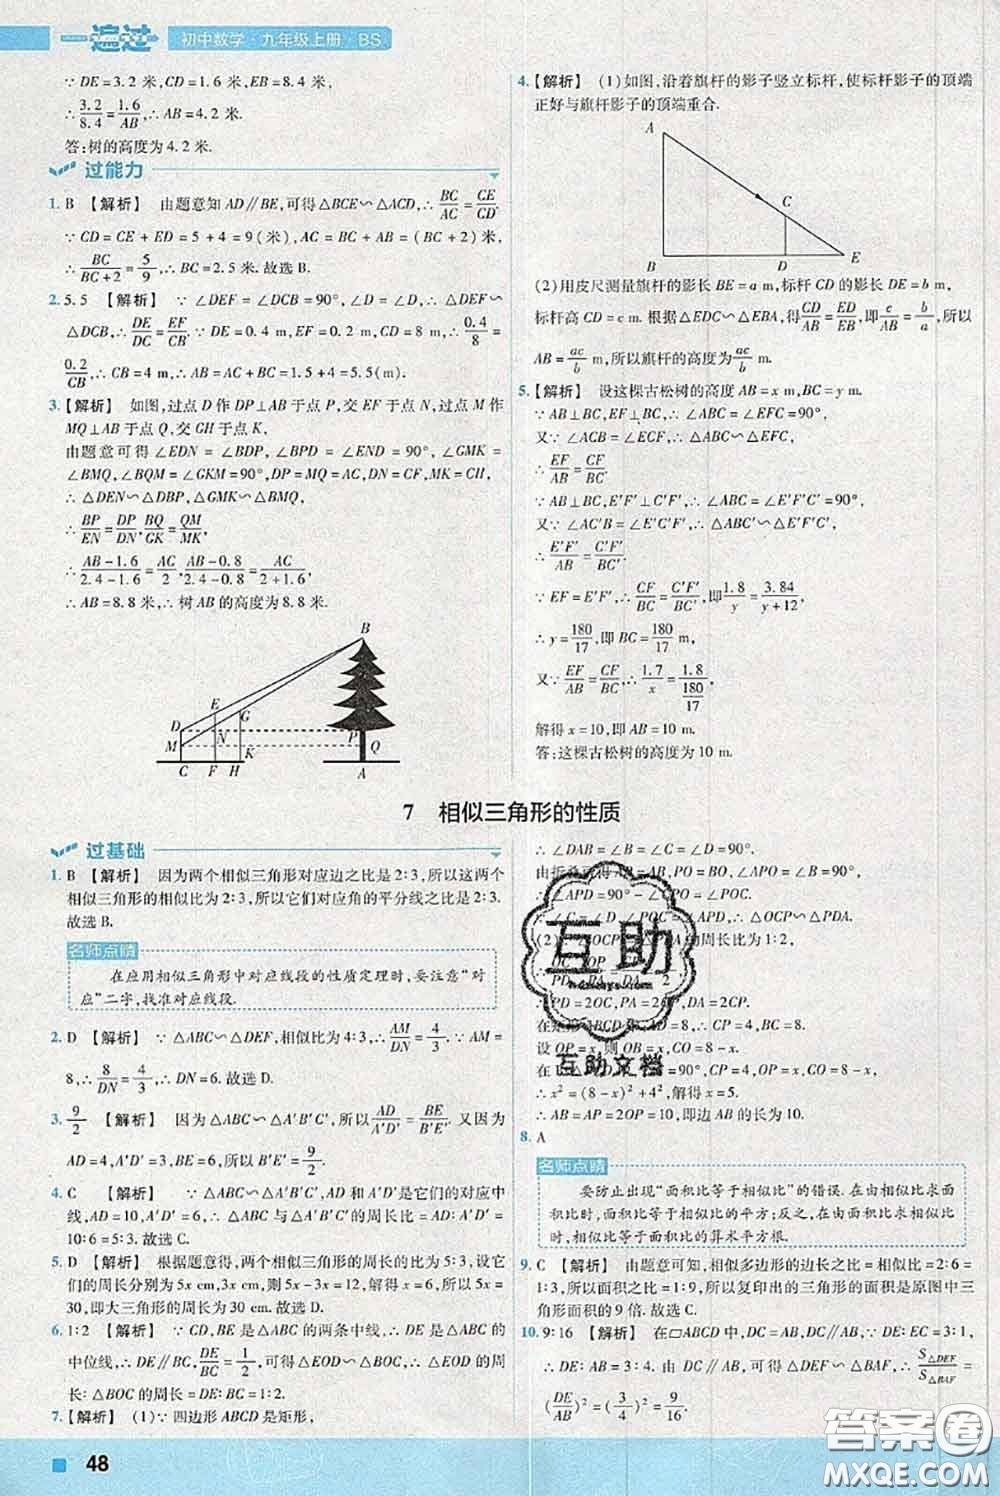 一遍过 初中数学·九年级上册·BS
∵DE=3.2 米,CD=1.6 米,EB=8.4 米,
∴3.2/8.4=1.6/AB,∴AB=4.2 米.
答:树的高度为4.2 米.
过能力
1. B 【解析】 由题意知 AD∥BE,可得△BCE∽△ACD,∴BC/AC=CE/CD.
∵CD=CE+ED=5+4=9(米),AC=BC+AB=(BC+2)米,
∴BC/(BC+2)=5/9,∴BC=2.5 米.故选 B.
2. 5.5 【解析】 ∵∠DEF=∠DCB=90°,∠D=∠D,∴△DEF∽
△DCB,∴DE/DC=EF/CB.∵DE=0.4 m,EF=0.2 m,CD=8 m,∴0.4/8=
0.2/CB,∴CB=4 m,∴AB=AC+BC=1.5+4=5.5(m).
3.【解析】 如图,过点 D 作 DP⊥AB 于点 P,交 EF 于点 N,过点 M 作
MQ⊥AB 于点 Q,交 GH 于点 K,
由题意可得∠EDN=∠BDP,∠BPD=∠END=90°,∠GMK=
∠BMQ,∠BQM=∠GKM=90°,DP=MQ=AC,DN=CF,MK=CH,
∴△DEN∽△DBP,△GMK∽△BMQ,
∴BP/EN=DP/DN,BQ/GK=QM/MK,
∴(AB-1.6)/(2.4-1.6)=AC/2,(AB-0.8)/(2.4-0.8)=AC/(2+1.6),
∴AB=8.8 米,∴树 AB 的高度为 8.8 米.
B
E
G
D
N
P
M
K
Q
C F H
A
4.【解析】 (1)如图,沿着旗杆的影子竖立标杆,使标杆影子的顶端
正好与旗杆影子的顶端重合.
A
C
B
D
E
(2)用皮尺测量旗杆的影长 BE=a m,标杆 CD 的影长 DE=b m,
标杆高 CD=c m.根据△EDC∽△EBA,得CD/AB=ED/EB,即c/AB=b/a,所以
AB=ac/b m,所以旗杆的高度为ac/b m.
5.【解析】 设这棵古松树的高度 AB=x m,BC=y m.
∵AB⊥BC,EF⊥BC,∴∠ABC=∠EFC=90°,
又∵∠ACB=∠ECF,∴△ABC∽△EFC,
∴EF/AB=CF/BC.
∵AB⊥BC,E'F'⊥C'F',∴∠ABC=∠E'F'C'=90°,
又∵∠AC'B=∠E'C'F',∴△ABC'∽△E'F'C',
∴E'F'/AB=C'F'/BC'.
∵EF=E'F',∴CF/BC=C'F'/BC',即1.8/y=3.84/(y+12),
∴y=180/17,即 BC=180/17 m,
又∵EF/AB=CF/BC,∴1.7/x=1.8/(180/17),
解得 x=10,即 AB=10 m.
答:这棵古松树的高度为 10 m.
7 相似三角形的性质
过基础
1. B 【解析】 因为两个相似三角形对应边之比是2∶3,所以这两个
相似三角形的相似比是2∶3,所以它们对应角的平分线之比是2∶3.
故选 B.
名师点睛
在应用相似三角形中对应线段的性质定理时,要注意“对
应”二字,找准对应线段.
2. D 【解析】 ∵△ABC∽△DEF,相似比为4∶3,∴AM/DN=4/3.∵AM=
8,∴8/DN=4/3,∴DN=6.故选 D.
3. 9/2 【解析】 因为△ABC∽△A'B'C',所以AD/A'D'=BE/B'E'.又因为
AD=4,A'D'=3,BE=6,所以 B'E'=9/2.
4. C 【解析】 ∵△ABC∽△A'B'C',AD 和 A'D'是它们的对应中
线,AD=10,A'D'=6,∴△ABC 与△A'B'C'的周长比=
10∶6=5∶3.故选 C.
5. D 【解析】 根据题意得,两个相似三角形的周长的比为5∶3,设它
们的周长分别为5x cm,3x cm,所以5x-3x=12,解得 x=6,所以5x=
30,即大三角形的周长为30 cm.故选 D.
6. 1∶2 【解析】 ∵CD,BE 是△ABC 的两条中线,∴DE 是△ABC 的
中位线,∴DE∥BC,DE/BC=1/2,可得△EOD∽△BOC,∴△EOD 的周
长∶△BOC 的周长=DE∶BC=1∶2.
7.【解析】 (1)∵四边形 ABCD 是矩形,
∴∠DAB=∠B=∠C=∠D=90°.
∴∠APD=90°-∠OPC=∠POC.
∴x²=(8-x)²+4²,解得 x=5.
∴AB=AP=2OP=10,即边 AB 的长为10.
8. A
名师点睛
要防止出现“面积比等于相似比”的错误.在由相似比求面
积比时,面积比等于相似比的平方;反之,在由面积比求相似比
时,相似比等于面积比的算术平方根.
9. C 【解析】 由题意可知,相似多边形的边长之比=相似比=2∶6=
1∶3,所以面积之比=1∶9,所以复印出的三角形的面积是原图中三
角形面积的9倍.故选 C.
10. 9∶16 【解析】 在▱ABCD 中,DC=AB,DC∥AB,∵DE∶EC=3∶1,
∴DE∶AB=3∶4.由 DC∥AB,可得△DEF∽△BAF,∴S△DEF/S△BAF=
(DE/AB)²=(3/4)²=9/16.
48
互助
互助文档
答案圈
MXQE.COM